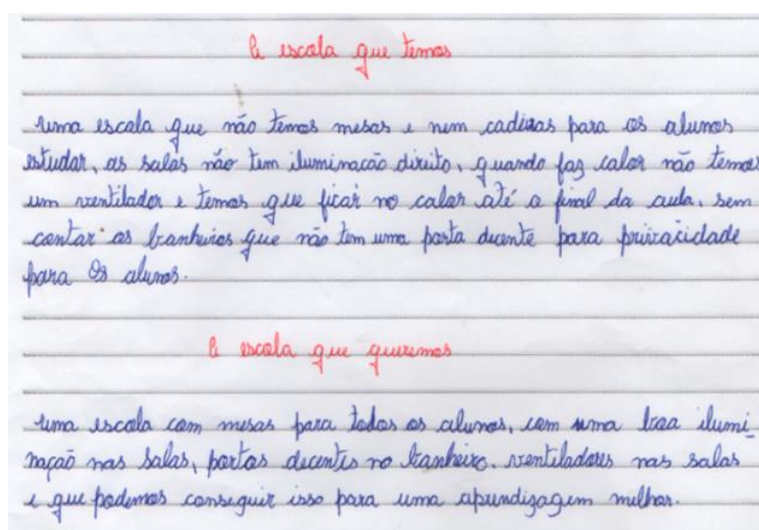 A escola que temos
Uma escola que não temos mesas e nem cadiras para os alunos
estudar, as salas não tem iluminacão direito, quando faz calor não temos
um ventilador e temos que ficar no calor até o final da aula, sem
contar os banheiros que não tem uma porta decente para privacidade
para os alunos.
A escola que queremos
Uma escola com mesas para todos os alunos, com uma boa ilumi-
nação nas salas, portas decentes no banheiro, ventiladores nas salas
e que podemos conseguir isso para uma aprendizagem melhor.